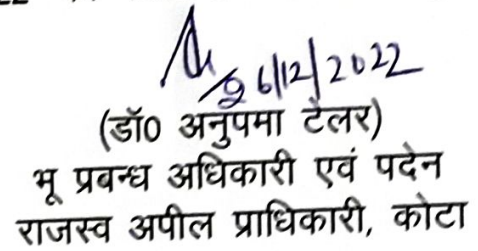 6/12/2022
(डॉ0 अनुपमा टेलर)
भू प्रबन्ध अधिकारी एवं पदेन
राजस्व अपील प्राधिकारी, कोटा